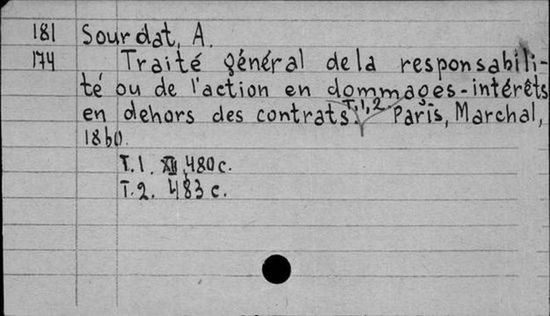 181 Sourdat, A.
174 Traité général de la responsabili-
té ou de l'action en dommages-intérêts
en dehors des contrats. T.1,2. Paris, Marchal,
1860.
T.1. XII, 480 c.
T.2. 483 c.